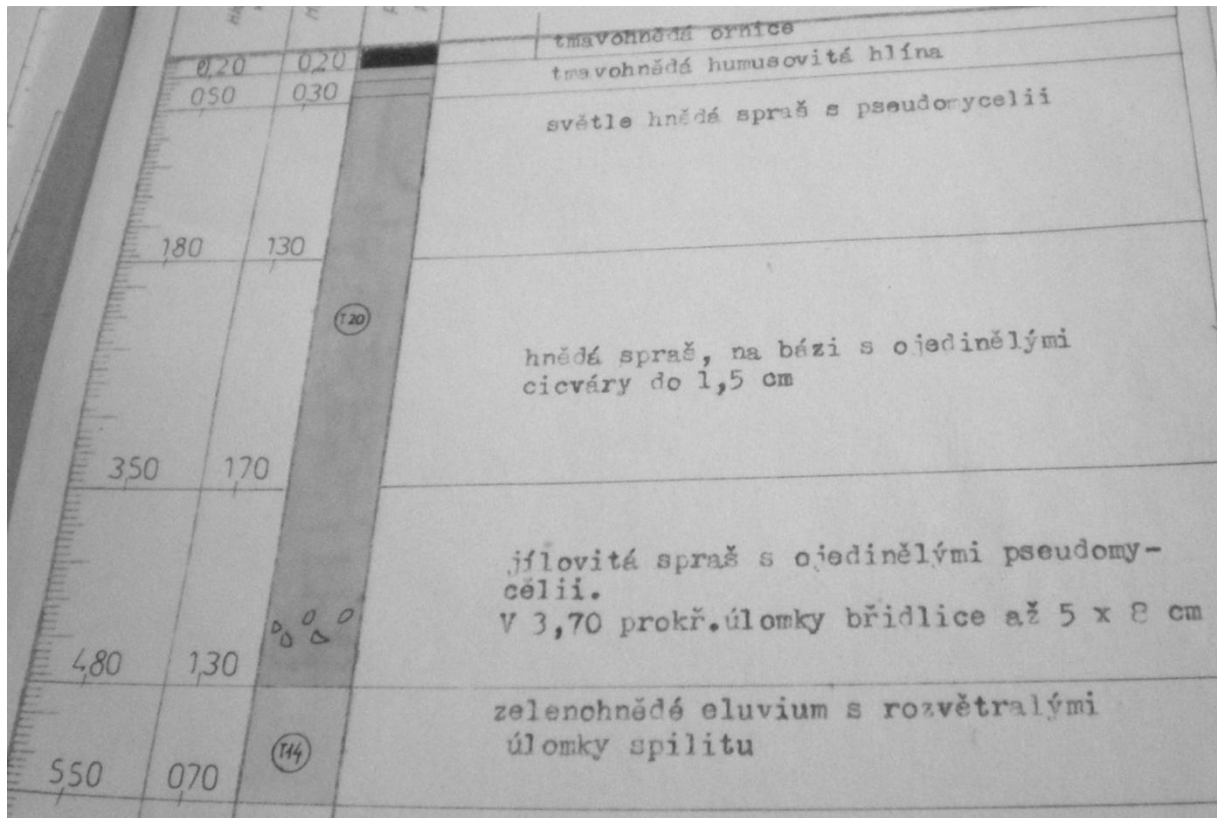 tmavohnědá ornice
0,20 0,20
tmavohnědá humusovitá hlína
0,50 0,30
světle hnědá spraš s pseudomycelii
1,80 1,30
T20
hnědá spraš, na bázi s ojedinělými
cicváry do 1,5 cm
3,50 1,70
jílovitá spraš s ojedinělými pseudomy-
célii.
V 3,70 prokř.úlomky břidlice až 5 x 8 cm
4,80 1,30
zelenohnědé eluvium s rozvětralými
úlomky spilitu
T14
5,50 0,70